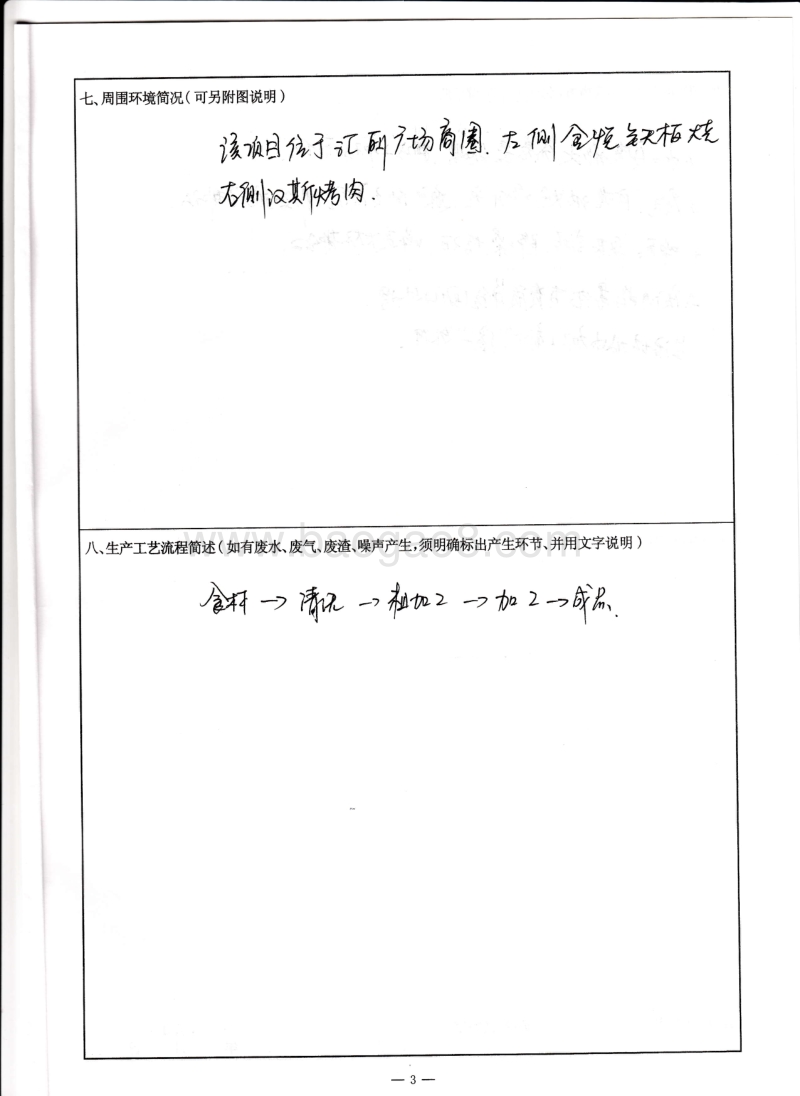 七、周围环境简况(可另附图说明)
该项目位于汇 广场商圈.左侧金 铁板烧
右侧汉斯烤肉.
www.baogao8.com
八、生产工艺流程简述(如有废水、废气、废渣、噪声产生,须明确标出产生环节、并用文字说明)
食材→清洗→粗加工→加工→成品.
— 3 —